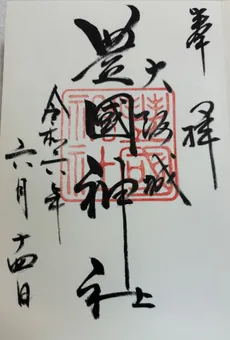 奉拝
大阪城
豊國神社
令和六年
六月十四日